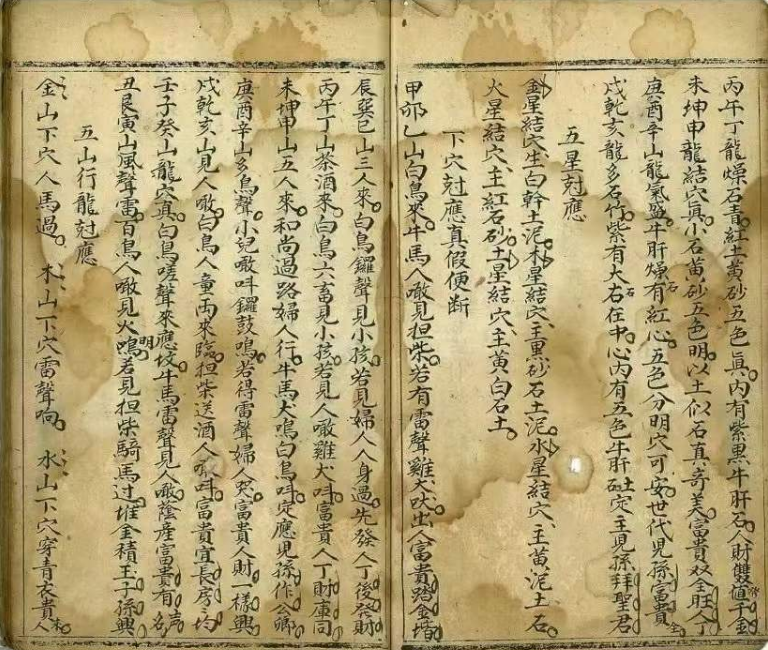 丙午丁龍燥石青紅土黃砂五色真內有紫黑牛肝石人財雙值千金
未坤申龍結穴真小石黃砂五色明以土似石真奇美富貴双全旺人丁
庚酉辛山龍氣盛牛肝燥石有紅心五色分明穴可安世代児孫富貴全
戌乾亥龍多石竹紫有大石在中心內有五色牛肝砡定主児孫拜聖君
五星尅應
金星結穴生白幹土泥木星結穴主黑砂石土泥水星結穴主黃泥土石
火星結穴主紅石砂土星結穴主黃白石土
下穴尅應真假便斷
甲卯乙山白鳥來牛馬人噉見担柴若有雷聲雞犬吠出人富貴踏金堦
辰巽巳山三人來白鳥鑼聲見小孩若見婦人人身過先發人丁後發財
丙午丁山茶酒來白鳥六畜見小孩若見人噉雞犬呌富貴人丁財庫司
未坤申山五人來和尚過路婦人行牛馬犬鳴白鳥呌定應児孫作公卿
庚酉辛山多鳥聲小兒噉呌鑼鼓鳴若得雷聲婦人哭富貴人財一樣興
戌乾亥山見人噉白鳥人童兩來臨担柴送酒人噉呌富貴宜長房均
壬子癸山龍穴真白鳥嗟聲來應坟牛馬雷聲見人噉蔭産富貴有名声
丑艮寅山風聲雷百鳥人噉見火明鳴若見担柴騎馬过堆金積玉子孫興
五山行龍尅應
金山下穴人馬過 木山下穴雷聲响 水山下穴穿青衣貴人來